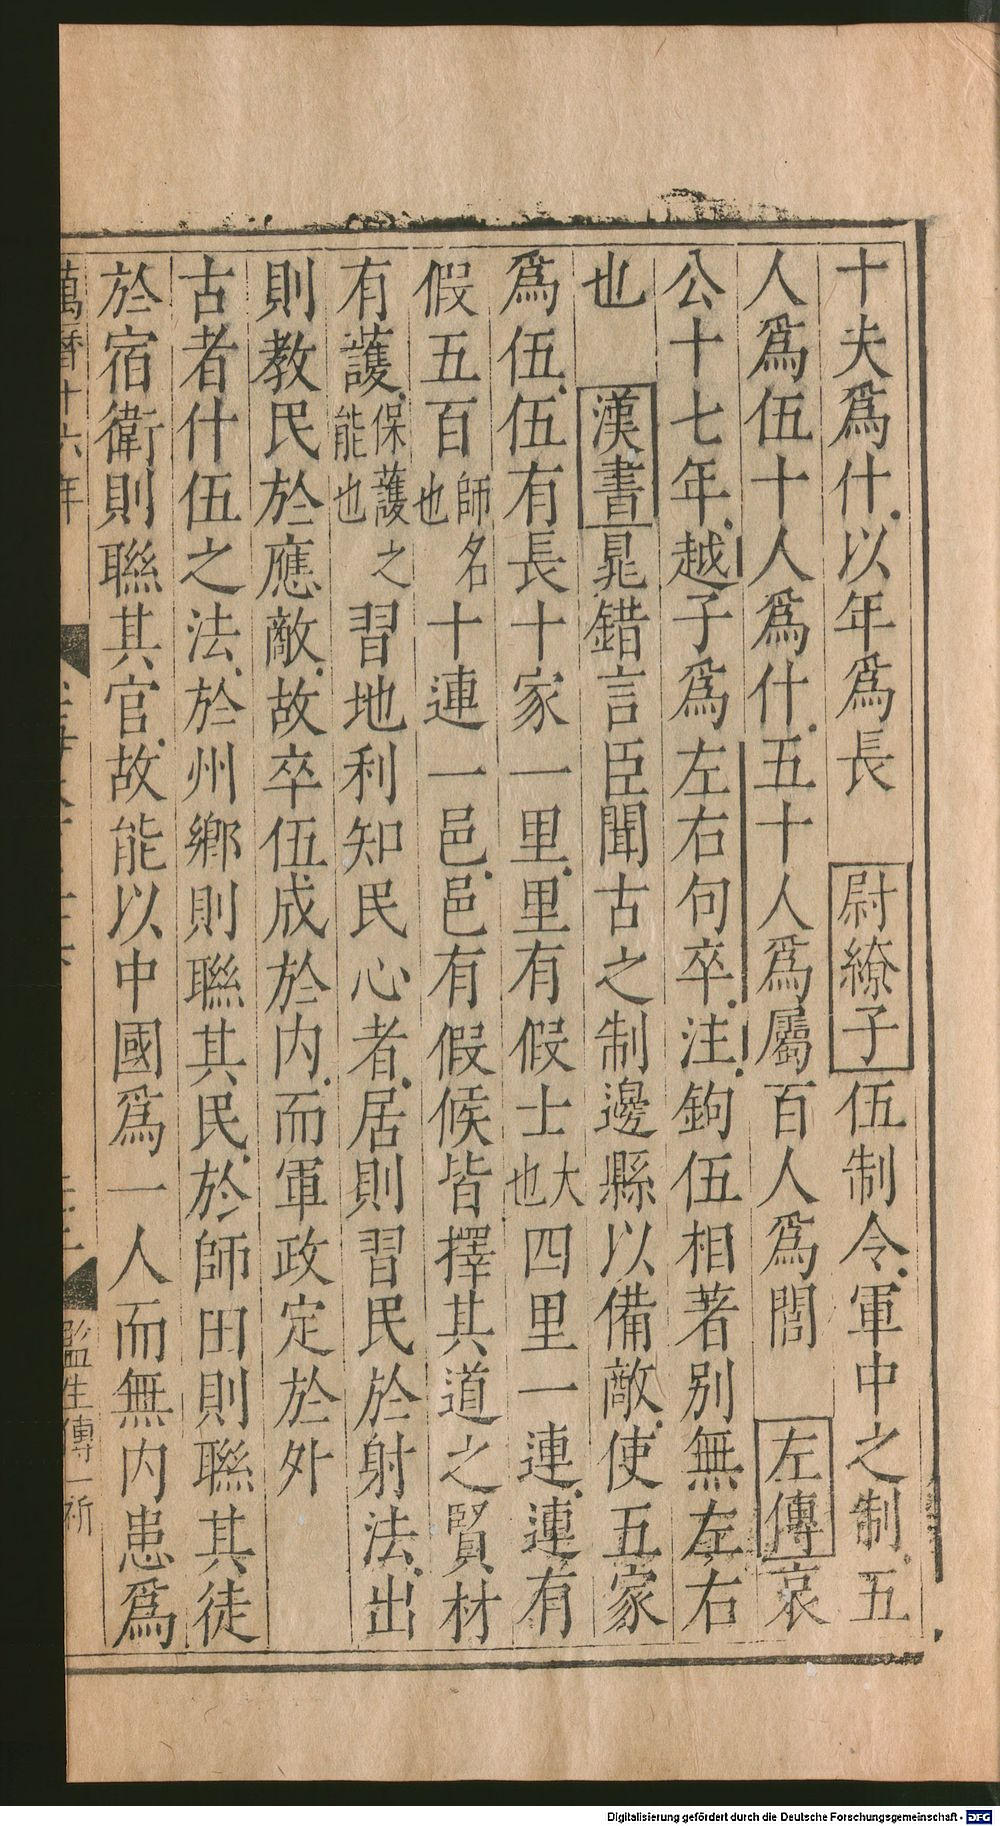 十夫爲什以年爲長　尉繚子伍制令軍中之制五
人爲伍十人爲什五十人爲屬百人爲閭　左傳哀
公十七年越子爲左右句卒注鉤伍相著别無左右
也　漢書鼂錯言臣聞古之制邊縣以備敵使五家
爲伍伍有長十家一里里有假士大也四里一連連有
假五百師名也十連一邑邑有假候皆擇其道之賢材
有䕶保䕶之能也習地利知民心者居則習民於射法出
則教民於應敵故卒伍成於内而軍政定於外
古者什伍之法於州鄉則聯其民於師田則聯其徒
於宿衛則聯其官故能以中國爲一人而無内患爲
萬曆十六年
監生傳一祈
Digitalisierung gefördert durch die Deutsche Forschungsgemeinschaft - DFG